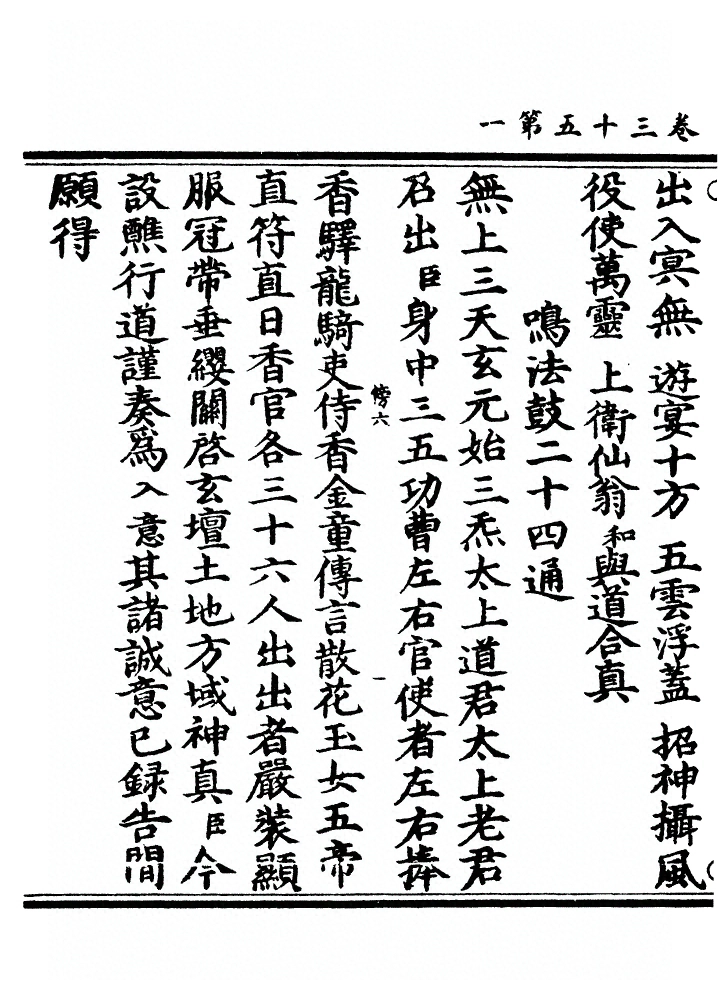 卷三十五第一
出入㝠無 遊宴十方 五雲浮蓋 招神攝風
役使萬靈 上衛仙翁 和與道合真
鳴法鼓二十四通
無上三天玄元始三炁太上道君太上老君
召出臣身中三五功曹左右官使者左右捧
香驛龍騎吏侍香金童傳言散花玉女五帝
直符直日香官各三十六人出出者嚴裝顯
服冠帶垂纓關啓玄壇土地方域神真臣今
設醮行道謹奏為入意其諸誠意已録告間
願得
傍六
一